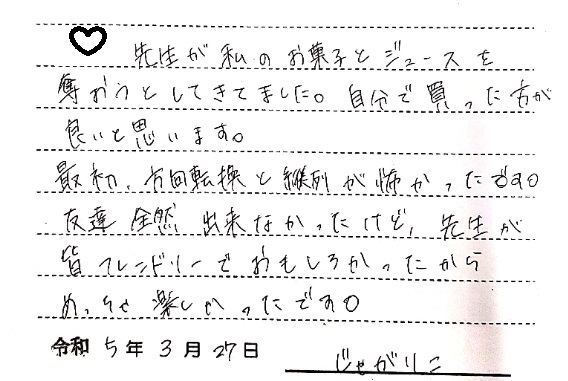 ♡ 先生が私のお菓子とジュースを
奪おうとしてきてました。自分で買った方が
良いと思います。
最初、方向転換と縦列が怖かったです。
友達全然出来なかったけど、先生が
皆フレンドリーでおもしろかったから
めっちゃ楽しかったです。
令和 5年 3月 27日
じゃがりこ